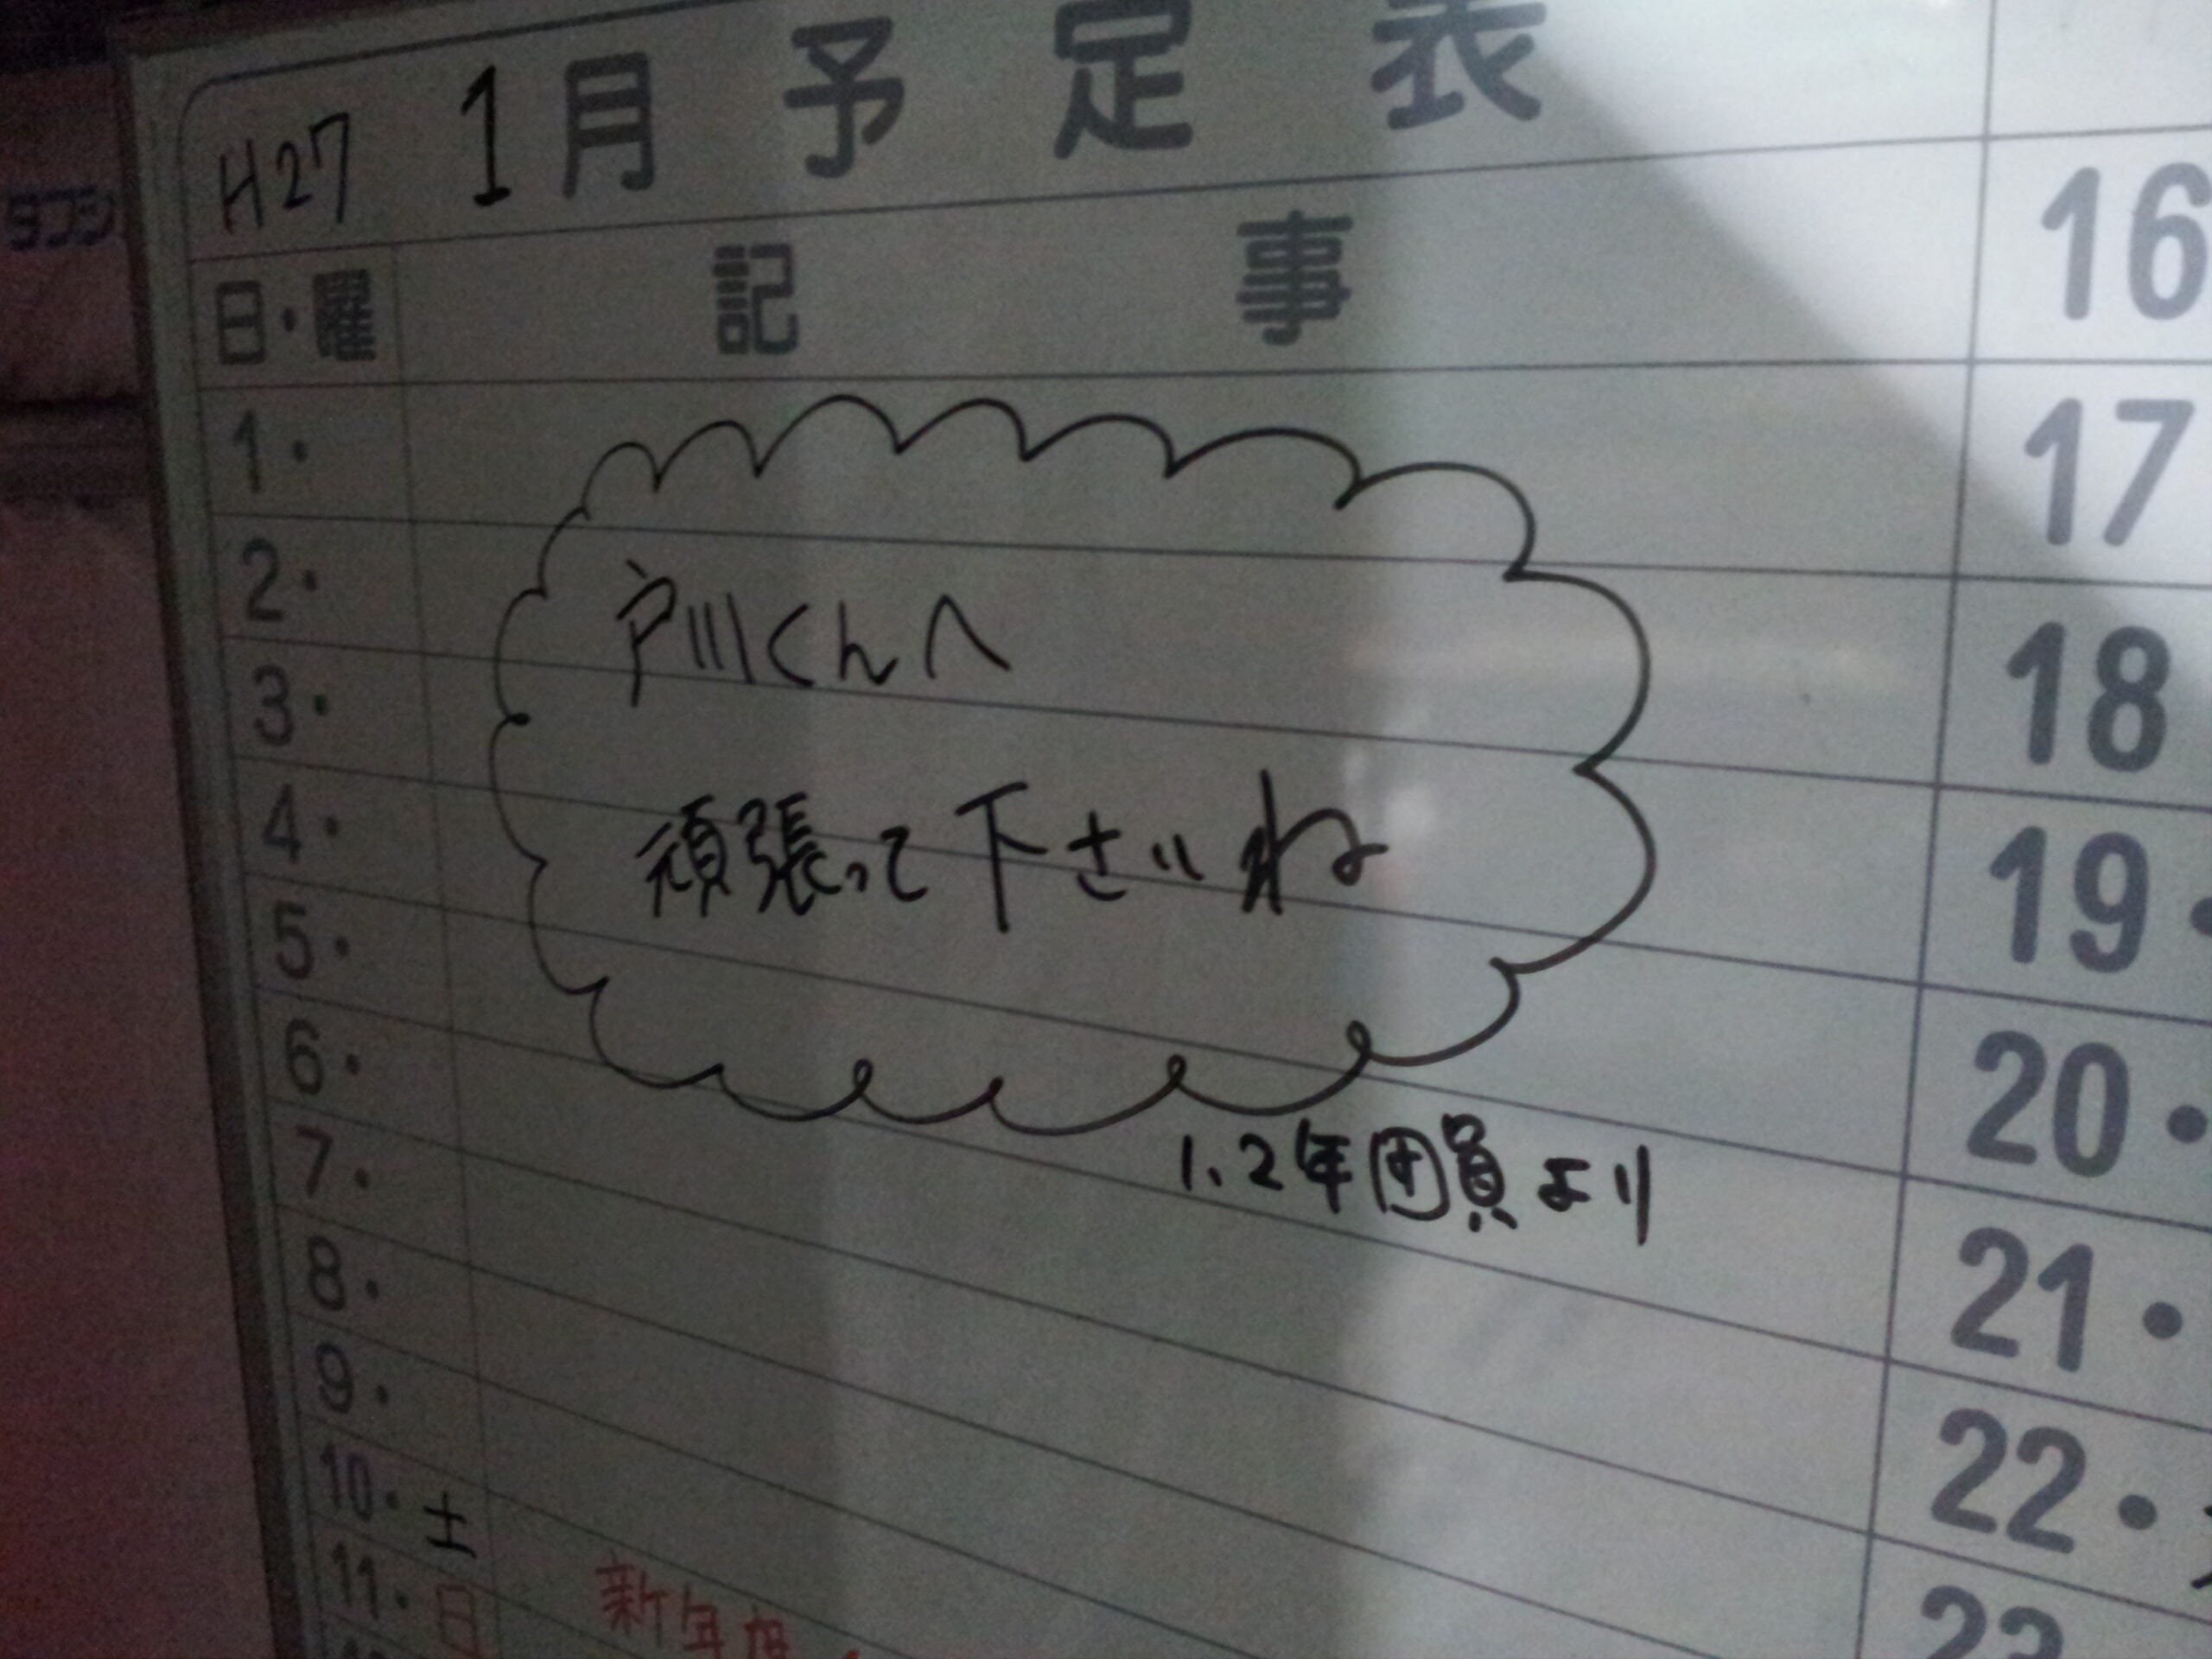 H27 1月予定表
日・曜 記事
1・
2・
3・
4・
5・
6・
7・
8・
9・
10・土
11・日 新年
戸川くんへ
頑張って下さいね
1、2年団員より
16
17
18
19・
20・
21・
22・
23